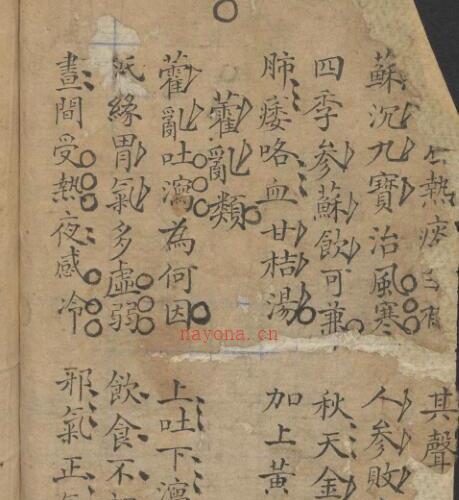 熱痰已有 其聲
蘇沉九寶治風寒 人參敗
四季參蘇飲可兼 秋天金
肺痿咯血甘桔湯 加上黃
藿亂類
藿亂吐瀉為何因 上吐下瀉
緣胃氣多虛弱 飲食不
晝間受熱夜感冷 邪氣正
nayona.cn